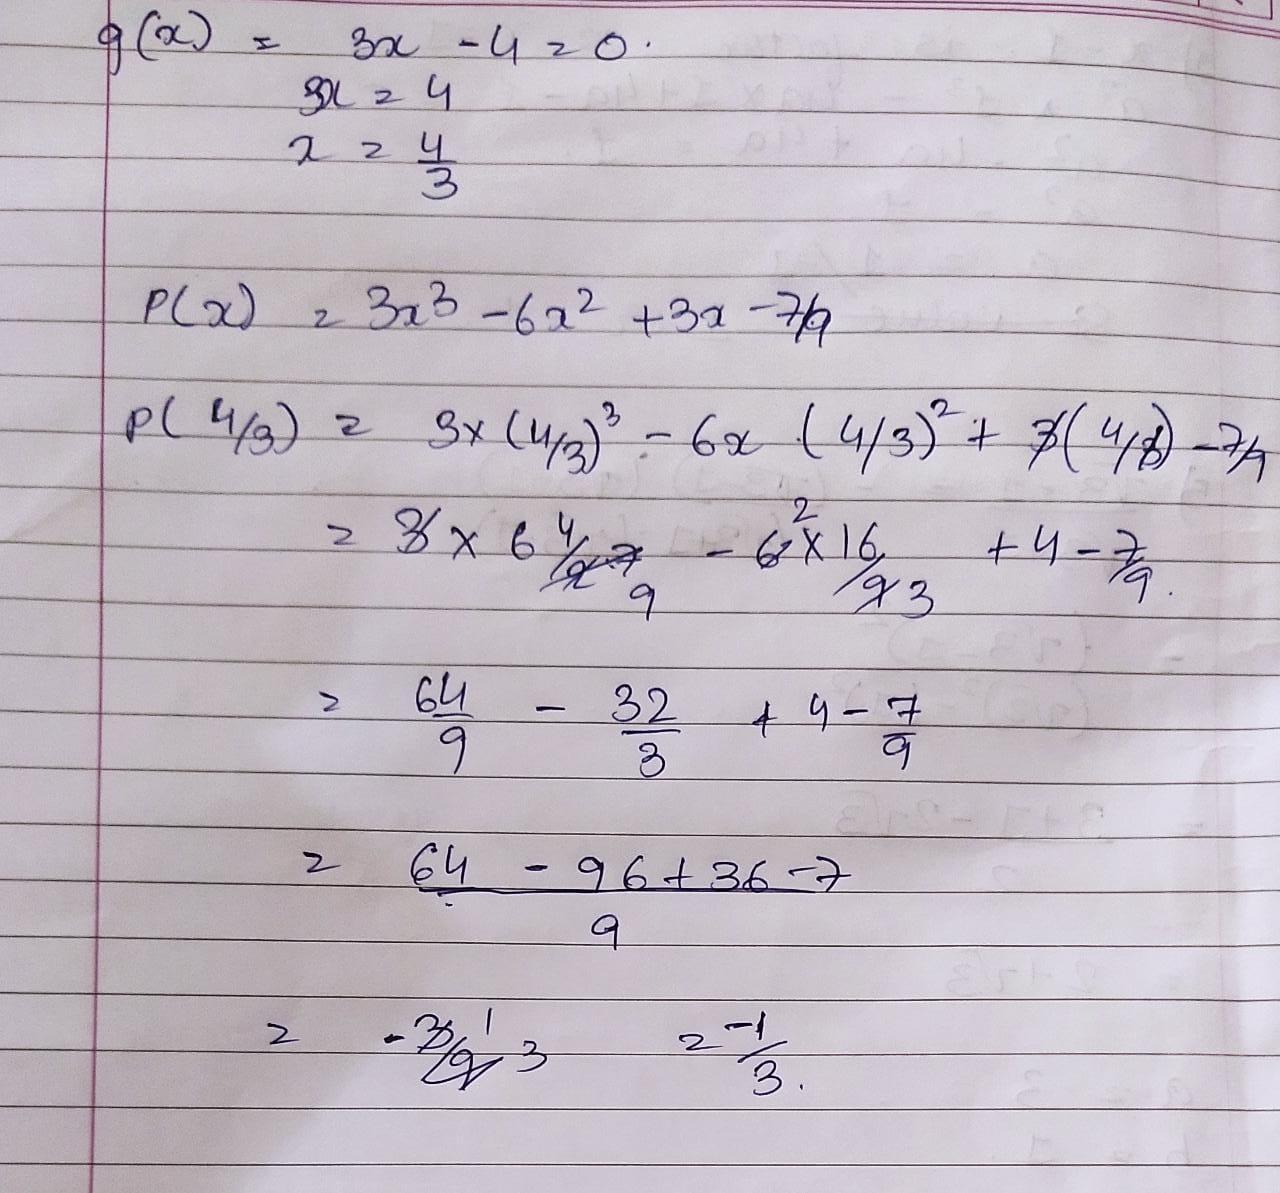 g(x) = 3x - 4 = 0.
3x = 4
x = 4/3
P(x) = 3x³ - 6x² + 3x - 7/9
P(4/3) = 3x(4/3)³ - 6x (4/3)² + 3(4/3) - 7/9
= 3 x 64/27 9 - 6 2 x 16/9 3 + 4 - 7/9.
= 64/9 - 32/3 + 4 - 7/9
= 64 - 96 + 36 - 7
9
= -3/9 1 3 = -1/3.